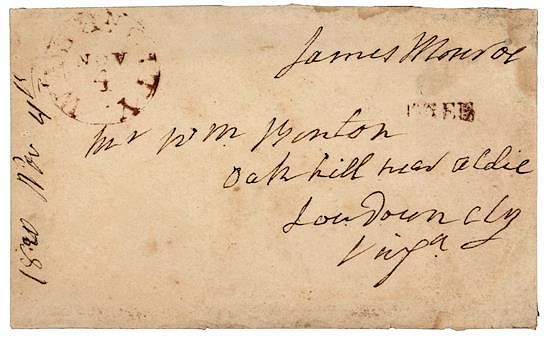 James Monroe
FREE
NOV
4
Mr Wm Benton
Oak hill near aldie
Loudoun Cty
Virga
1820 Nov 4th